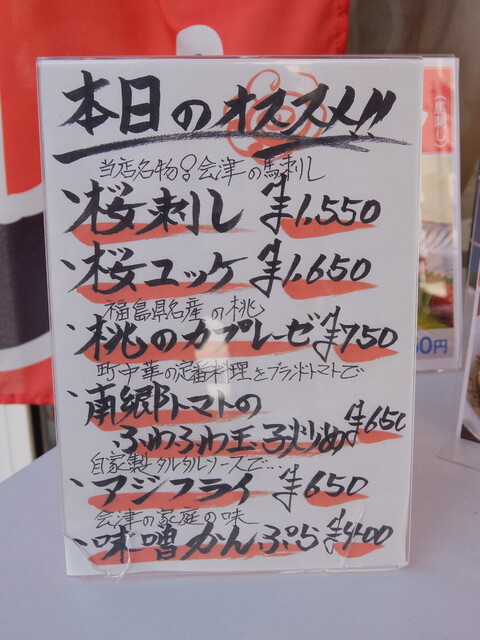 本日のオススメ!!
当店名物!会津の馬刺し
、桜刺し ¥1,550
、桜ユッケ ¥1,650
福島県名産の桃
、桃のカプレーゼ ¥750
町中華の定番料理をブランドトマトで
、南郷トマトの
ふわふわ玉子炒め ¥650
自家製タルタルソースで…
、アジフライ ¥650
会津の家庭の味
、味噌かんぷら ¥400
馬刺し
50円